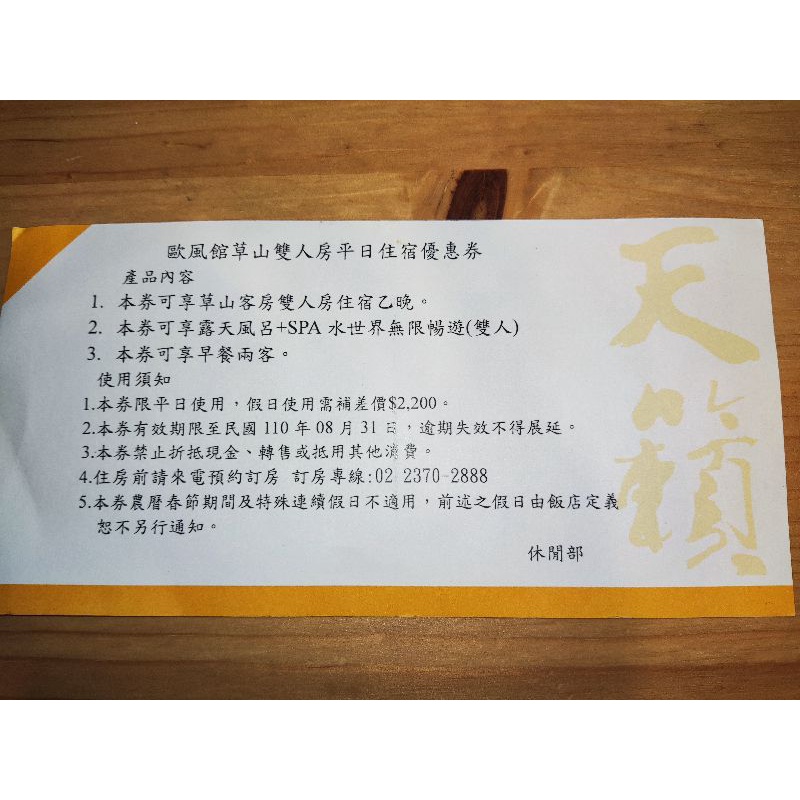 歐風館草山雙人房平日住宿優惠券
產品內容
1. 本券可享草山客房雙人房住宿乙晚。
2. 本券可享露天風呂+SPA 水世界無限暢遊(雙人)
3. 本券可享早餐兩客。
使用須知
1.本券限平日使用，假日使用需補差價$2,200。
2.本券有效期限至民國 110 年 08 月 31 日，逾期失效不得展延。
3.本券禁止折抵現金、轉售或抵用其他消費。
4.住房前請來電預約訂房 訂房專線:02 2370-2888
5.本券農曆春節期間及特殊連續假日不適用，前述之假日由飯店定義
恕不另行通知。
休閒部
天籟